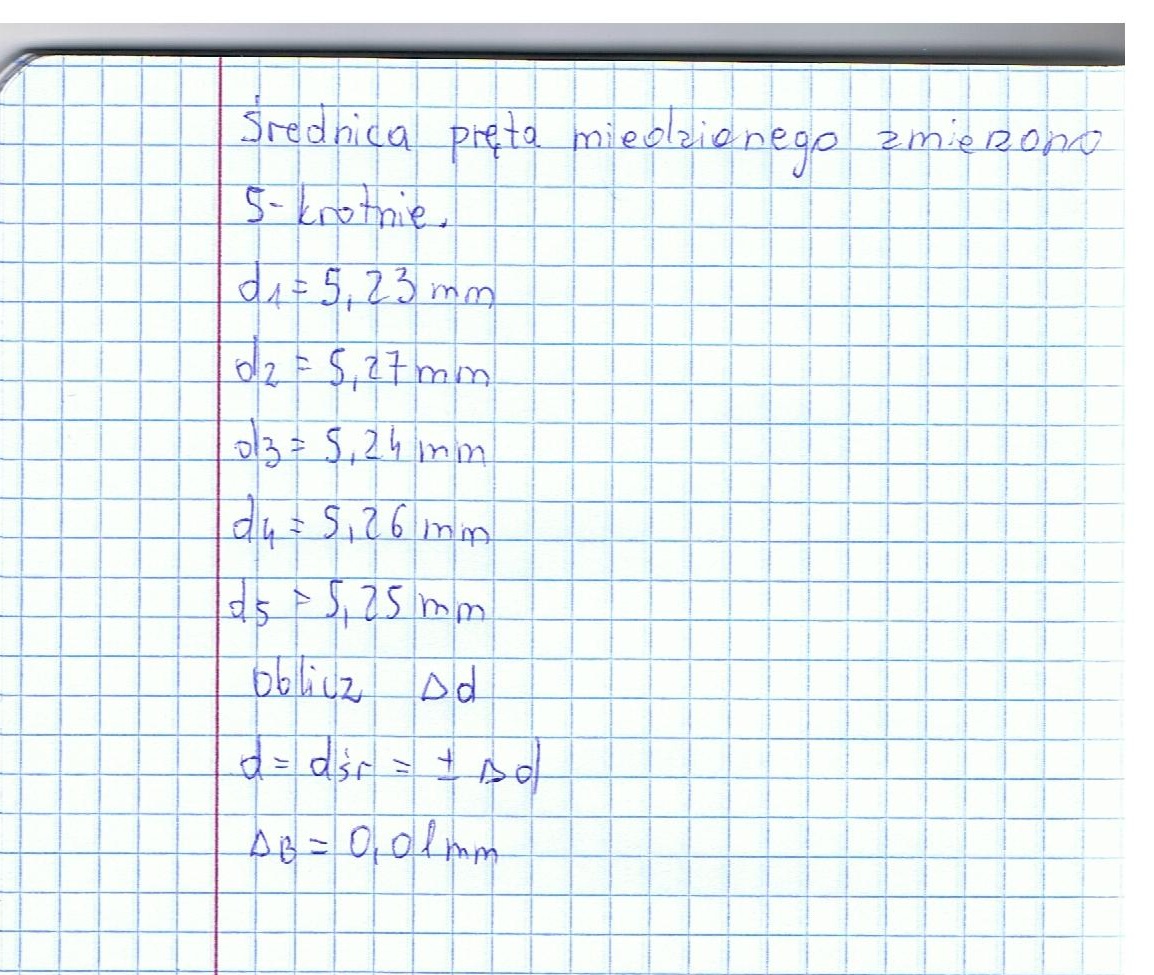 Średnica pręta miedzianego zmierzono
5-krotnie.
d1 = 5,23 mm
d2 = 5,27 mm
d3 = 5,24 mm
d4 = 5,26 mm
d5 = 5,25 mm
oblicz Δd
d = dśr = ± Δd
ΔB = 0,01 mm